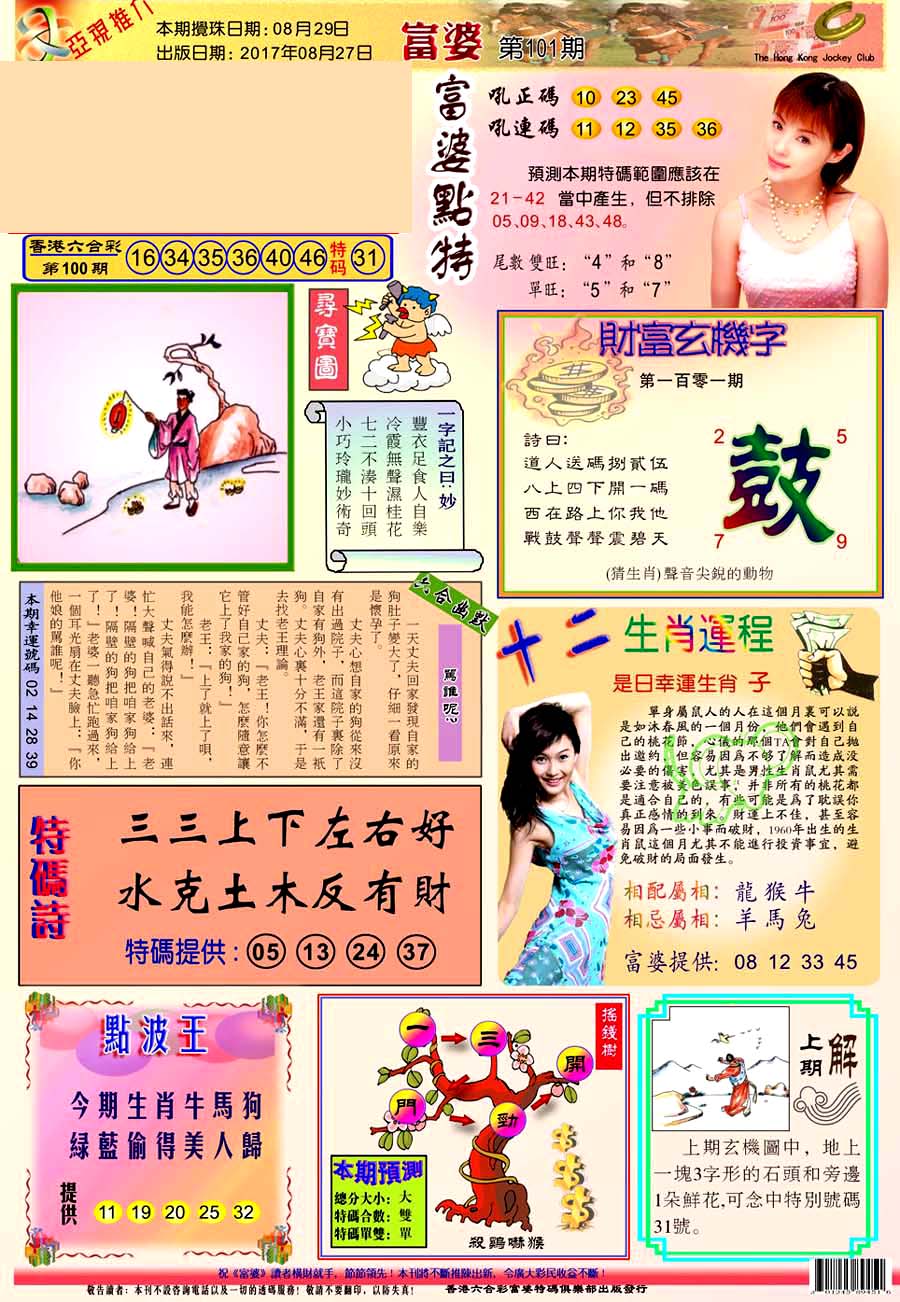 亞視推介
本期攪珠日期:08月29日
出版日期:2017年08月27日
富婆 第101期
The Hong Kong Jockey Club
富婆點特
吼正碼 10 23 45
吼連碼 11 12 35 36
預測本期特碼範圍應該在
21-42 當中產生,但不排除
05、09、18、43、48。
尾數雙旺:“4”和“8”
單旺:“5”和“7”
香港六合彩
第100期
16 34 35 36 40 46 特码 31
尋寶圖
一字記之曰:妙
豐衣足食人自樂
冷霞無聲濕桂花
七二不湊十回頭
小巧玲瓏妙術奇
財富玄機字
第一百零一期
詩曰:
道人送碼捌貳伍
八上四下開一碼
西在路上你我他
戰鼓聲聲震碧天
2 5
鼓
7 9
(猜生肖)聲音尖銳的動物
六合幽默
罵誰呢?
一天丈夫回家發現自家的
狗肚子變大了,仔細一看原來
是懷孕了。
丈夫心想自家的狗從來沒
有出過院子,而這院子裏除了
自家有狗外,老王家還有一衹
狗。丈夫心裏十分不滿,于是
去找老王理論。
丈夫:『老王!你怎麼不
管好自己家的狗,怎麼隨意讓
它上了我家的狗!』
老王:『上了就上了唄,
我能怎麼辦!』
丈夫氣得說不出話來,連
忙大聲喊自己的老婆:『老
婆!隔壁的狗把咱家狗給上
了!隔壁的狗把咱家狗給上
了!』老婆一聽急忙跑過來
一個耳光扇在丈夫臉上:『你
他娘的罵誰呢!』
本期幸運號碼 02 14 28 39
十二生肖運程
是日幸運生肖 子
單身屬鼠人的人在這個月裏可以說
是如沐春風的一個月份,他們會遇到自
己的桃花節,心儀的那個TA會對自己拋
出邀約,但容易因爲不够了解而造成没
必要的傷害,尤其是男性生肖鼠尤其需
要注意被美色誤事,并非所有的桃花都
是適合自己的,有些可能是爲了耽誤你
真正感情的到來。財運上不佳,甚至容
易因爲一些小事而破財,1960年出生的生
肖鼠這個月尤其不能進行投資事宜,避
免破財的局面發生。
相配屬相:龍猴牛
相忌屬相:羊馬兔
富婆提供:08 12 33 45
特碼詩
三三上下左右好
水克土木反有財
特碼提供:05 13 24 37
點波王
今期生肖牛馬狗
綠藍偷得美人歸
提供
11 19 20 25 32
搖錢樹
一 三 開
門 勁
本期預測
總分大小:大
特碼合數:雙
特碼單雙:單
殺鷄嚇猴
上期解
上期玄機圖中,地上
一塊3字形的石頭和旁邊
1朵鮮花,可念中特別號碼
31號。
祝《富婆》讀者橫財就手,節節領先!本刊將不斷推陳出新,令廣大彩民收益不斷!
敬告讀者:本刊不設咨詢電話以及一切的透碼服務!敬請不要翻印,以防失真!
香港六合彩富婆特碼俱樂部出版發行